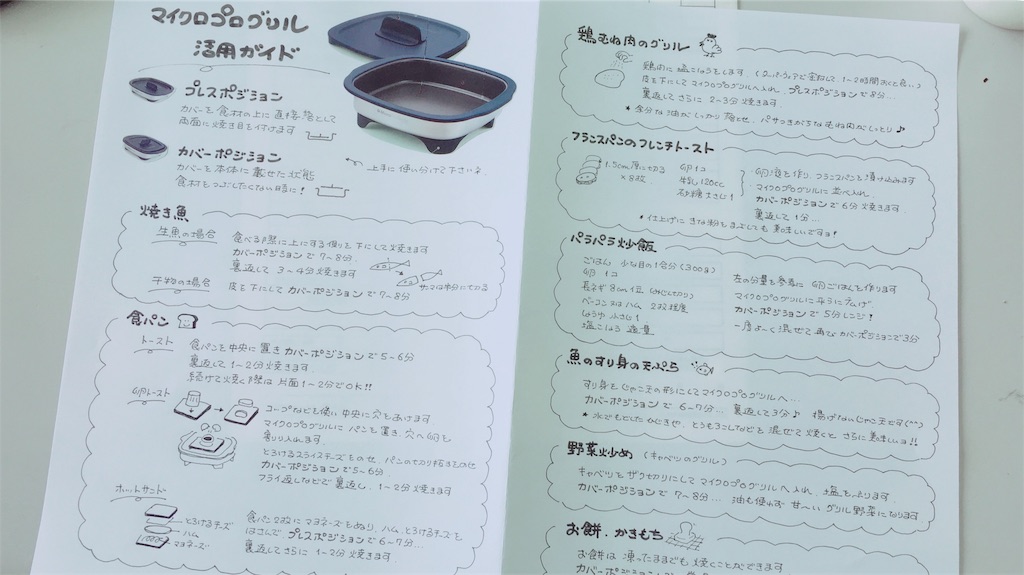 マイクロプログリル
活用ガイド
プレスポジション
カバーを食材の上に直接落として
両面に焼き目を付けます
カバーポジション
カバーを本体に載せた状態
食材をつぶしたくない時に!
上手に使い分けて下さいネ
焼き魚
生魚の場合
食べる際に上にする側を下にして焼きます
カバーポジションで7~8分
裏返して 3~4分焼きます
サンマは半分に切る
干物の場合
皮を下にしてカバーポジションで7~8分
食パン
トースト
食パンを中央に置きカバーポジションで5~6分
裏返して1~2分焼きます
続けて焼く際は片面1~2分でOK!!
卵トースト
コップなどを使い中央に穴をあけます
マイクロプログリルにパンを置き、穴へ卵を
割り入れます。
とろけるスライスチーズをのせ、パンの切り抜きをのせ
カバーポジションで5~6分
フライ返しなどで裏返し、1~2分焼きます
ホットサンド
とろけるチーズ
ハム
マヨネーズ
食パン2枚にマヨネーズをぬり、ハム、とろけるチーズを
はさんでプレスポジションで6~7分…
裏返してさらに1~2分焼きます
鶏むね肉のグリル
鶏肉に塩こうじをします(フォークで穴をあけて1~2時間おくと良い)
皮を下にしてマイクロプログリルへ入れ、プレスポジションで8分…
裏返してさらに2~3分焼きます。
* 余分な油がしっかり落とせ、パサつきがちなむね肉がしっとり♪
フランスパンのフレンチトースト
1.5cm厚に切る
×8枚
卵1コ
牛乳120cc
砂糖大さじ1
卵液を作り、フランスパンを漬け込みます
マイクロプログリルに並べ入れ、
カバーポジションで6分焼きます。
裏返して1分…
* 仕上げにきな粉をまぶしても美味しいですョ!
パラパラ炒飯
ごはん 少な目の1合分(300g)
卵1コ
長ネギ8cm位(みじん切り)
ベーコン又はハム 2枚程度
しょうゆ 小さじ1
塩こしょう 適量
左の分量を参考に卵ごはんを作ります
マイクロプログリルに平らに広げ、
カバーポジションで5分レンジ!
一度よ~く混ぜて再びカバーポジションで3分
魚のすり身の天ぷら
すり身をじゃこ天の形にしてマイクロプログリルへ…
カバーポジションで6~7分…裏返して3分♪ 揚げないじゃこ天です(^^)
* 水でもどしたひじきや、とうもろこしなどを混ぜて焼くと、さらに美味しいョ!!
野菜炒め(キャベツのグリル)
キャベツをザク切りにしてマイクロプログリルへ入れ、塩をふります。
カバーポジションで7~8分…油も使わず甘~いグリル野菜になります
お餅・かきもち
お餅は凍ったままでも焼くことができます